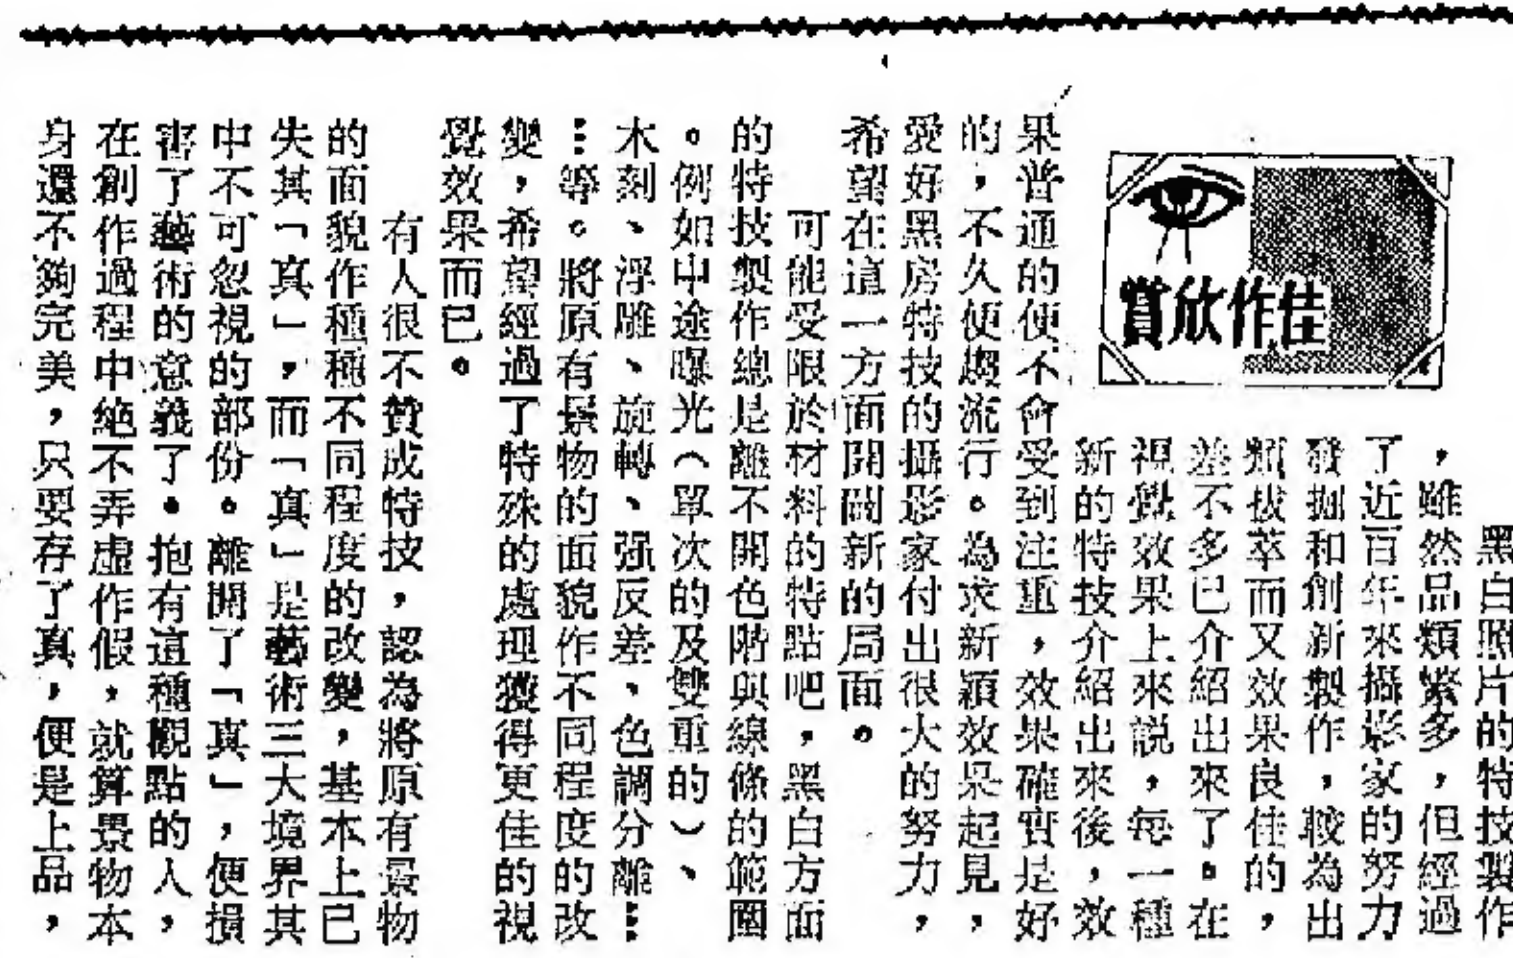 佳作欣賞
黑白照片的特技製作
，雖然品類繁多，但經過
了近百年來攝影家的努力
發掘和創新製作，較為出
類拔萃而又效果良佳的，
差不多已介紹出來了。在
視覺效果上來說，每一種
新的特技介紹出來後，效
果普通的便不會受到注重，效果確實是好
的，不久便趨流行。為求新穎效果起見，
愛好黑房特技的攝影家付出很大的努力，
希望在這一方面開闢新的局面。
可能受限於材料的特點吧，黑白方面
的特技製作總是離不開色階與線條的範圍
。例如中途曝光（單次的及雙重的）、
木刻、浮雕、旋轉、强反差、色調分離…
…等。將原有景物的面貌作不同程度的改
變，希望經過了特殊的處理獲得更佳的視
覺效果而已。
有人很不贊成特技，認為將原有景物
的面貌作種種不同程度的改變，基本上已
失其「真」，而「真」是藝術三大境界其
中不可忽視的部份。離開了「真」，便損
害了藝術的意義了。抱有這種觀點的人，
在創作過程中絕不弄虛作假，就算景物本
身還不夠完美，只要存了真，便是上品，